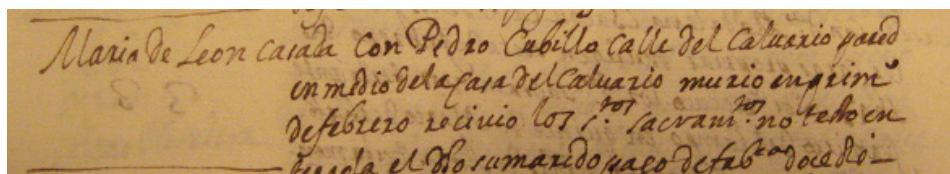 Maria de Leon casada con Pedro Cubillo calle del Caluario pared
en medio de la casa del Caluario murio en prim.º
de febrero reciuio los s.tos sacram.tos no testo en
el dho su marido pago de fab.ca doce Rs